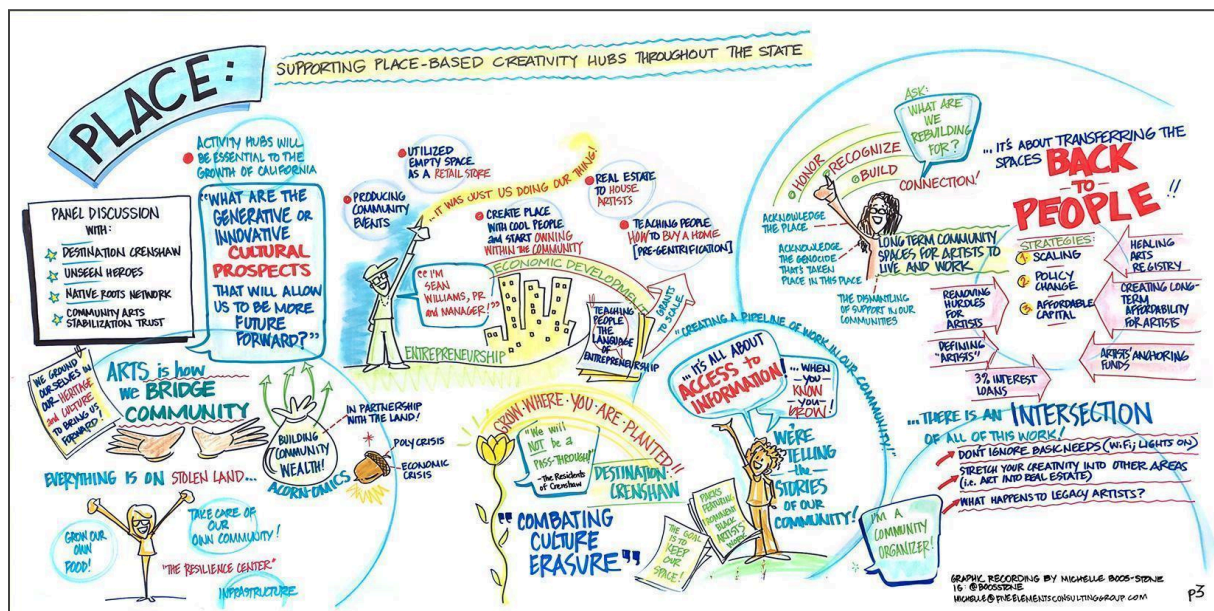 PLACE:
SUPPORTING PLACE-BASED CREATIVITY HUBS THROUGHOUT THE STATE
ACTIVITY HUBS WILL
BE ESSENTIAL TO THE
GROWTH OF CALIFORNIA
PANEL DISCUSSION
WITH:
DESTINATION CRENSHAW
UNSEEN HEROES
NATIVE ROOTS NETWORK
COMMUNITY ARTS
STABILIZATION TRUST
"WHAT ARE THE
GENERATIVE OR
INNOVATIVE
CULTURAL
PROSPECTS
THAT WILL ALLOW
US TO BE MORE
FUTURE
FORWARD?"
WE GROUND
OURSELVES IN
OUR HERITAGE
and CULTURE
TO BRING US
FORWARD!
ARTS is how
we BRIDGE
COMMUNITY
BUILDING
COMMUNITY
WEALTH!
ACORN-OMICS
IN PARTNERSHIP
WITH THE LAND!
POLY CRISIS
ECONOMIC
CRISIS
EVERYTHING IS ON STOLEN LAND...
GROW OUR
OWN
FOOD!
TAKE CARE OF
OUR
OWN COMMUNITY!
"THE RESILIENCE CENTER"
INFRASTRUCTURE
UTILIZED
EMPTY SPACE
AS A RETAIL STORE
PRODUCING
COMMUNITY
EVENTS
...IT WAS JUST US DOING OUR THING!
CREATE PLACE
WITH COOL PEOPLE
and START OWNING
WITHIN THE COMMUNITY
REAL ESTATE
TO HOUSE
ARTISTS
TEACHING PEOPLE
HOW TO BUY A HOME
[PRE-GENTRIFICATION]
"I'M
SEAN
WILLIAMS, PR
and MANAGER!"
ECONOMIC DEVELOPMENT
ENTREPRENEURSHIP
GRANTS
TO SCALE
TEACHING
PEOPLE
THE
LANGUAGE
OF
ENTREPRENEURSHIP
GROW WHERE YOU ARE PLANTED!!
"We will
NOT be a
PASS-THROUGH!"
-The Residents
of Crenshaw
DESTINATION
CRENSHAW
"COMBATING
CULTURE
ERASURE"
THE GOAL
IS TO
KEEP
OUR
SPACE!
PARKS
FEATURING
PROMINENT
BLACK
ARTISTS
WORK
"CREATING A PIPELINE OF WORK IN OUR COMMUNITY!"
...IT'S ALL ABOUT
ACCESS TO
INFORMATION!
...WHEN
-you-
KNOW
-you-
GROW!
WE'RE
TELLING
-the-
STORIES
OF OUR
COMMUNITY!
ASK:
WHAT ARE
WE
REBUILDING
FOR?
HONOR
RECOGNIZE
BUILD
CONNECTION!
ACKNOWLEDGE
THE PLACE
ACKNOWLEDGE
THE GENOCIDE
THAT'S TAKEN
PLACE IN THIS PLACE
THE DISMANTLING
OF SUPPORT IN OUR
COMMUNITIES
LONG TERM COMMUNITY
SPACES FOR ARTISTS TO
LIVE AND WORK
...IT'S ABOUT TRANSFERRING THE
SPACES BACK
TO
PEOPLE!!
STRATEGIES:
1 SCALING
2 POLICY
CHANGE
3 AFFORDABLE
CAPITAL
REMOVING
HURDLES
FOR
ARTISTS
DEFINING
"ARTISTS"
3% INTEREST
LOANS
HEALING
ARTS
REGISTRY
CREATING LONG-
TERM
AFFORDABILITY
FOR ARTISTS
ARTISTS' ANCHORING
FUNDS
...THERE IS AN INTERSECTION
OF ALL OF THIS WORK!
DON'T IGNORE BASIC NEEDS (WiFi; LIGHTS ON)
STRETCH YOUR CREATIVITY INTO OTHER AREAS
(i.e. ART INTO REAL ESTATE)
WHAT HAPPENS TO LEGACY ARTISTS?
I'M A
COMMUNITY
ORGANIZER!
GRAPHIC RECORDING BY MICHELLE BOOS-STONE
IG: @BOOSSTONE
MICHELLE@FIVEELEMENTSCONSULTINGGROUP.COM
p3